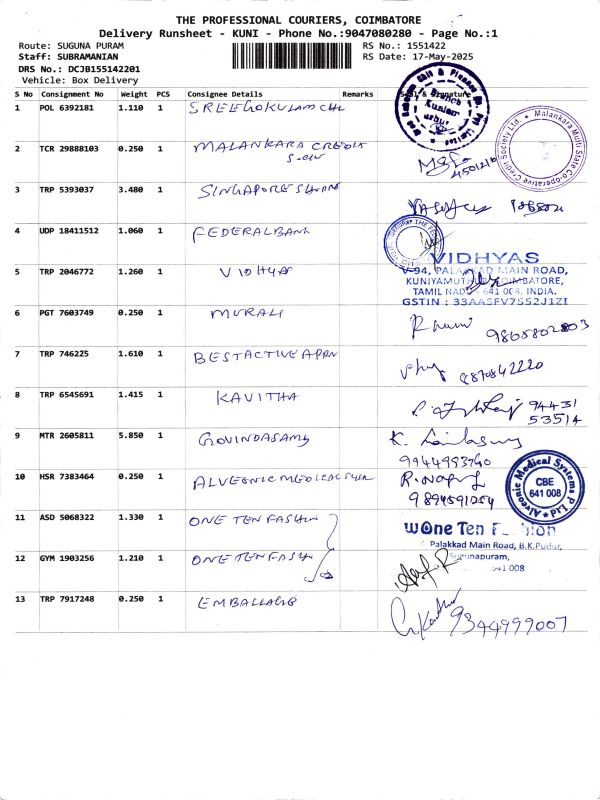 THE PROFESSIONAL COURIERS, COIMBATORE
Delivery Runsheet - KUNI - Phone No.:9047080280 - Page No.:1
Route: SUGUNA PURAM RS No.: 1551422
Staff: SUBRAMANIAN RS Date: 17-May-2025
DRS No.: DCJB155142201
Vehicle: Box Delivery
S No Consignment No Weight PCS Consignee Details Remarks Seal & Signature
1 POL 6392181 1.110 1 SREEGOKULAM CHL
2 TCR 29888103 0.250 1 MALANKARA CREDIT
Malankara Multi State Co-operative Credit Society Ltd.
3 TRP 5393037 3.480 1 SINGAPORE
4 UDP 18411512 1.060 1 FEDERAL BANK
VIDHYAS
5 TRP 2046772 1.260 1 VIDHYA V-94, PALAKKAD MAIN ROAD,
KUNIYAMUTHUR, COIMBATORE,
TAMIL NADU 641 008, INDIA.
GSTIN : 33AASFV7552J1ZI
6 PGT 7603749 0.250 1 MURALI
9865802803
7 TRP 746225 1.610 1 BESTACTIVE
8870842220
8 TRP 6545691 1.415 1 KAVITHA 94431
53514
9 MTR 2605811 5.850 1 GOVINDASAMY K.
9944993740
10 HSR 7383464 0.250 1 ALVEONIC MEDICAL
Alveonic Medical Systems P Ltd
CBE
641 008
11 ASD 5068322 1.330 1 ONE TEN FASHION
One Ten Fashion
Palakkad Main Road, B.K.Pudur,
Sugunapuram,
12 GYM 1903256 1.210 1 ONE TEN FASH 641 008
13 TRP 7917248 0.250 1 EMBALLAGE
9344999007